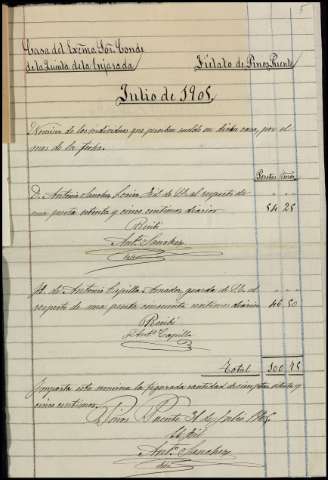 5
Casa del Exmo. Sor. Conde
de la Quinta de la Enjarada
Fielato de Pinos Puente
Julio de 1905
Nómina de los individuos que prestan sueldo en dicha casa, por el
mes de la fecha.
Pesetas Cénts
D. Antonio Sanchez Fiel de Id. al respecto de
una peseta setenta y cinco centimos diarios
54 25
Recibí
Anto. Sanchez
Id. de Antonio Capilla Amador, guarda de Id. al
respecto de una peseta cincuenta centimos diarios
46 50
Recibí
Anto. Capilla
Total 100 75
Importa esta nomina la figurada cantidad de cien pesetas setenta y
cinco centimos.
Pinos Puente 31 de Julio 1905
El Fiel
Anto. Sanchez